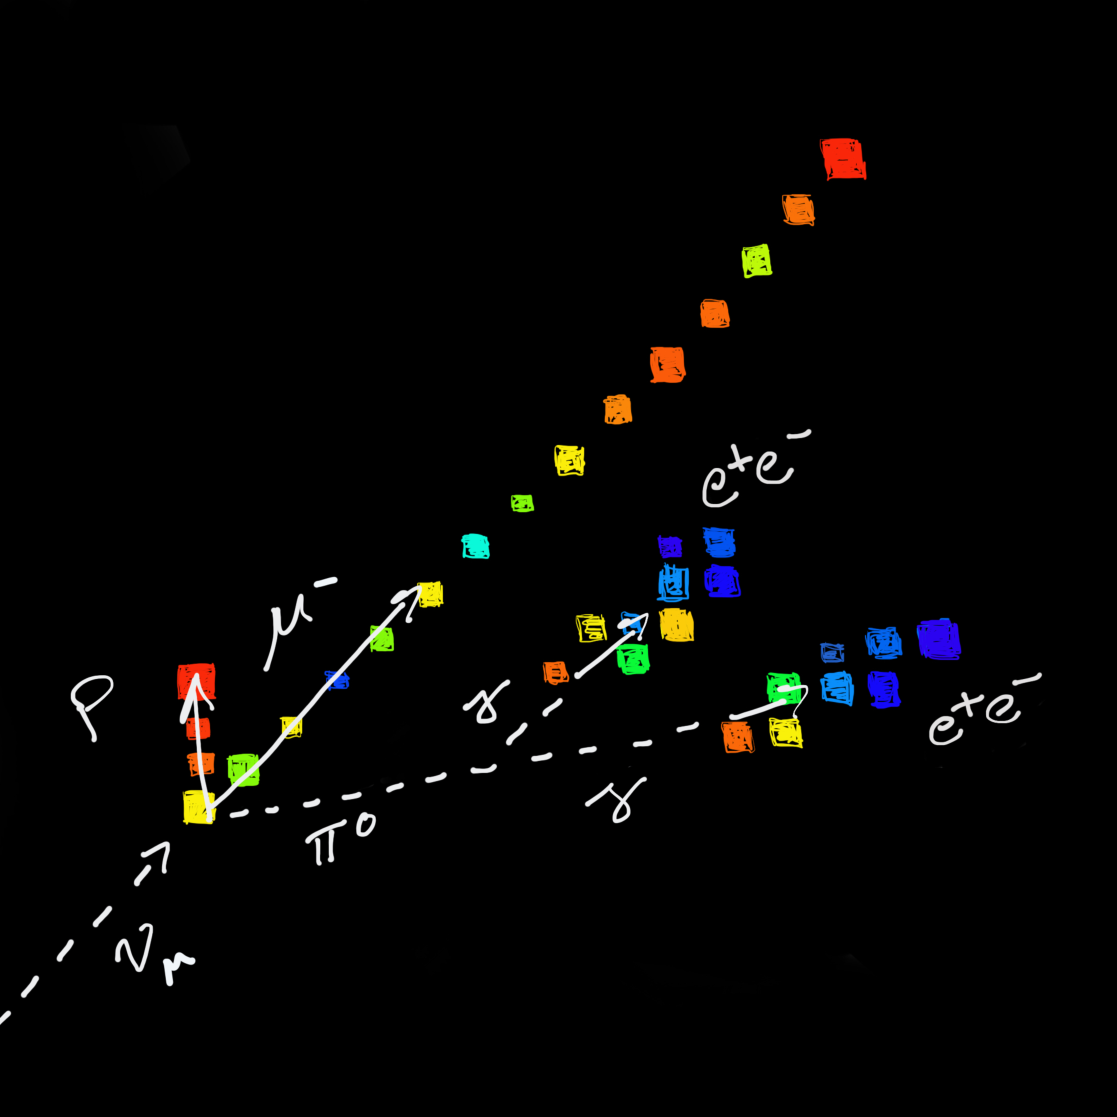 e⁺e⁻
μ⁻
p
γ
e⁺e⁻
γ
π⁰
ν_μ